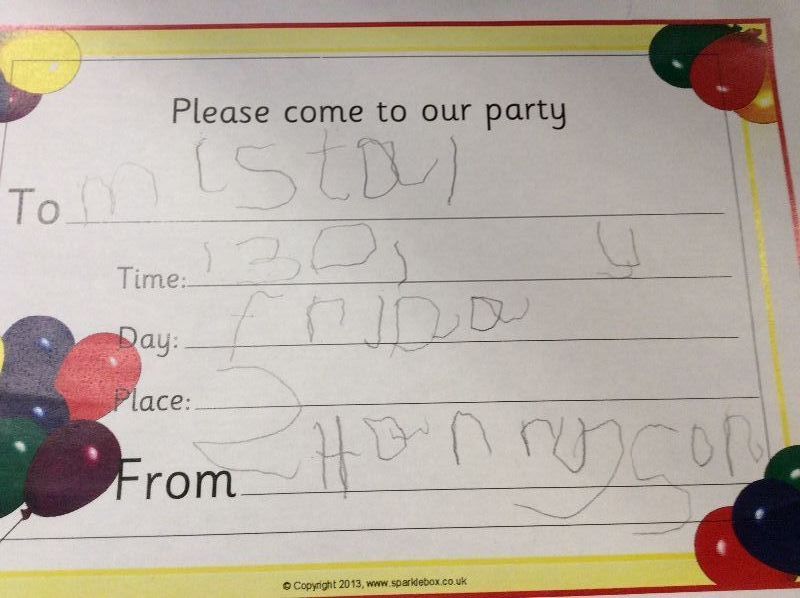 Please come to our party
To mistal
Time: 130
Day: frida y
Place:
From
© Copyright 2013, www.sparklebox.co.uk